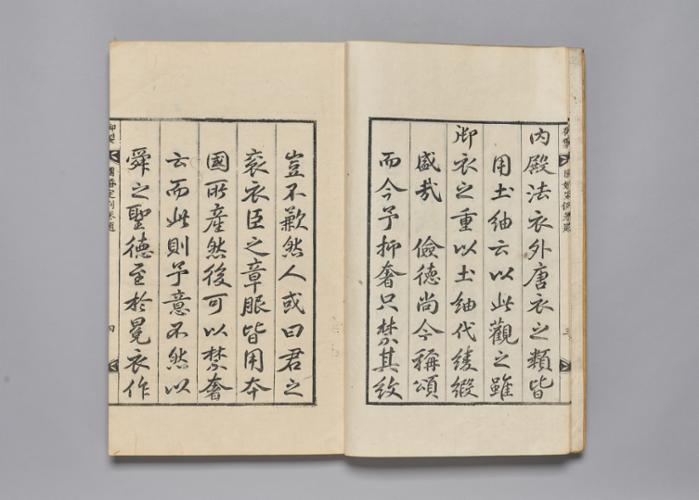 內殿法衣外唐衣之類皆
用土紬云以此觀之雖
御衣之重以土紬代綾緞
盛哉 儉德尚今稱頌
而今予抑奢只禁其紋
三
豈不歉然人或曰君之
袞衣臣之章服皆用本
國所產然後可以禁奢
云而此則予意不然以
舜之聖德至於冕衣作
御製
國婚定例卷題
四